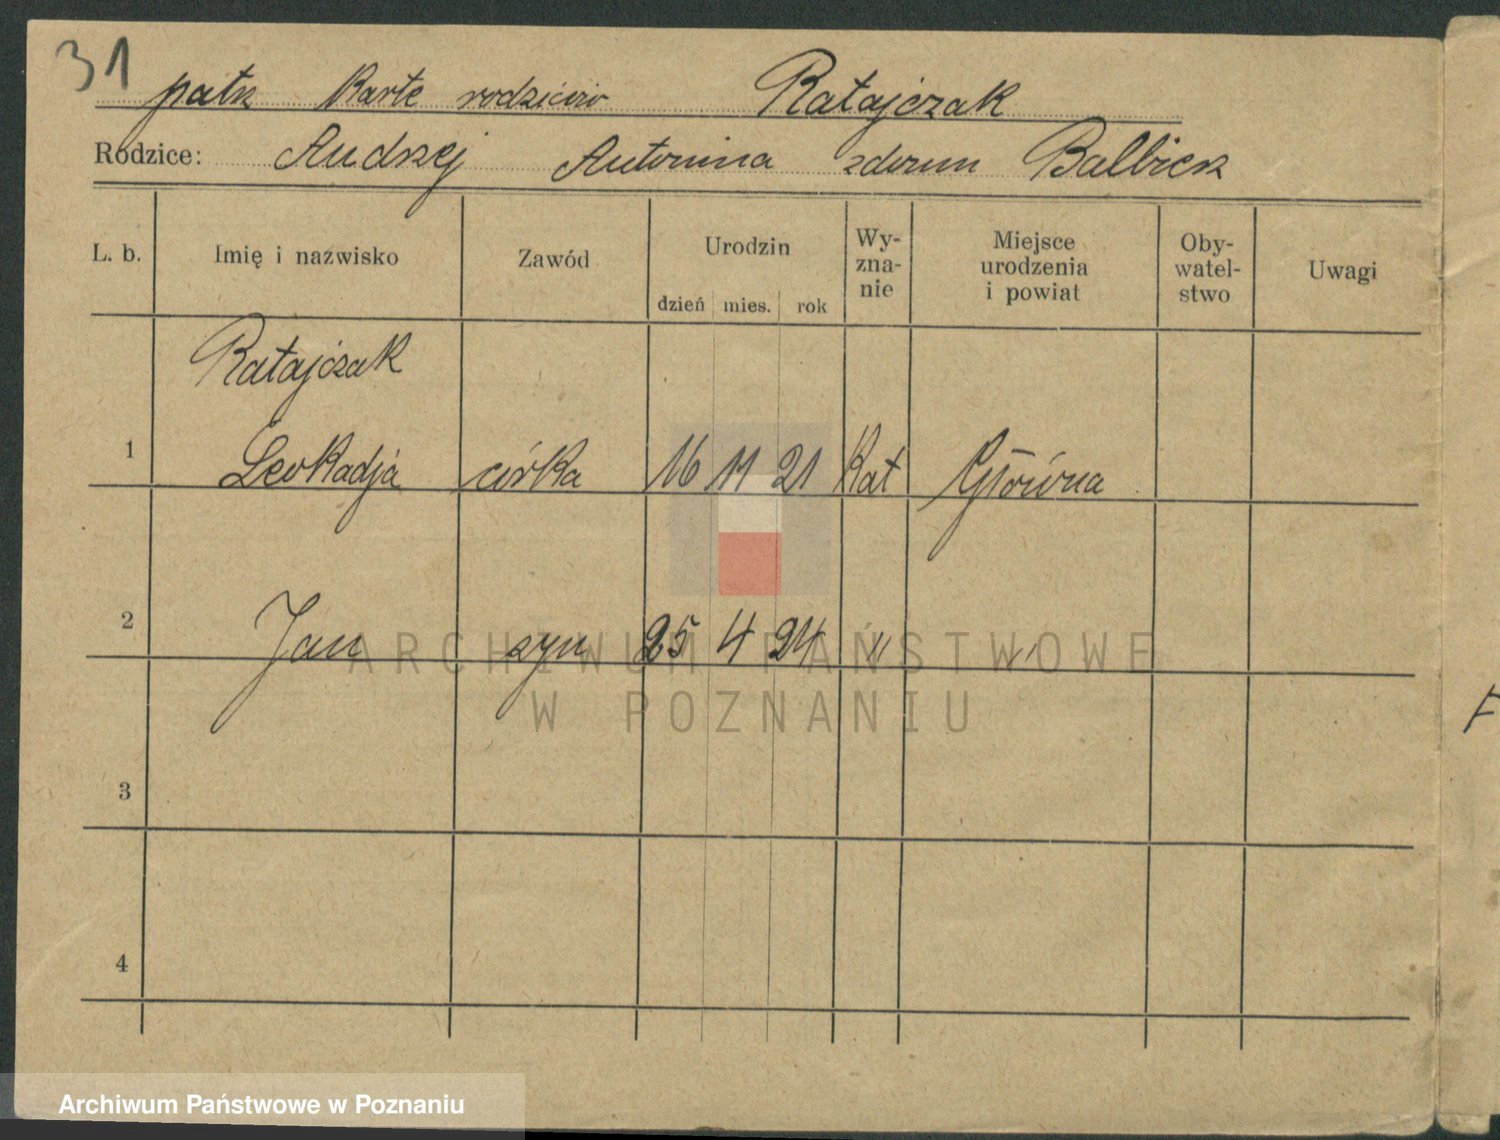 31
patrz Karte rodziców Ratajczak
Rodzice: Andrzej Antonina zdomu Balbierz
L. b. Imię i nazwisko Zawód Urodzin Wy- zna- nie Miejsce urodzenia i powiat Oby- watel- stwo Uwagi
dzień mies. rok
Ratajczak
1 Leokadja córka 16 11 21 Kat Główna
2 Jan syn 25 4 24 " "
3
4
ARCHIWUM PAŃSTWOWE
W POZNANIU
Archiwum Państwowe w Poznaniu